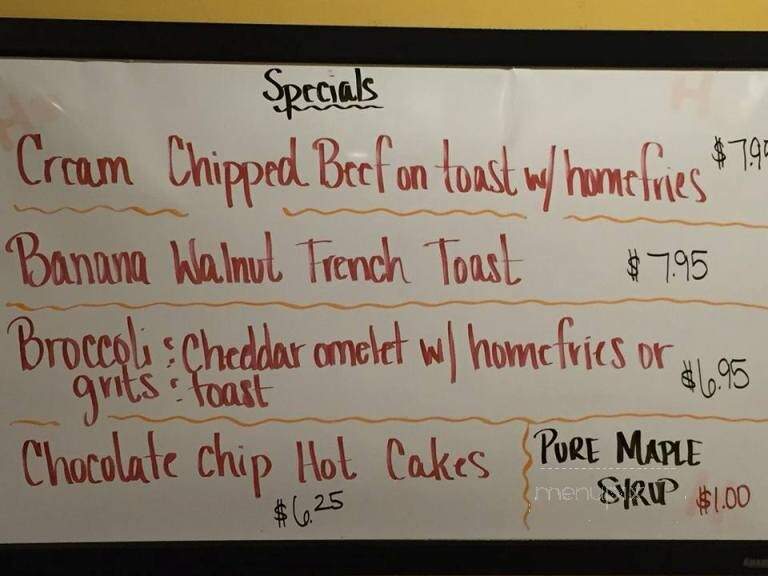 Specials
Cream Chipped Beef on toast w/ homefries $7.95
Banana Walnut French Toast $7.95
Broccoli : Cheddar omelet w/ homefries or $6.95
grits : toast
Chocolate chip Hot Cakes
$6.25
PURE MAPLE
SYRUP $1.00
menupix